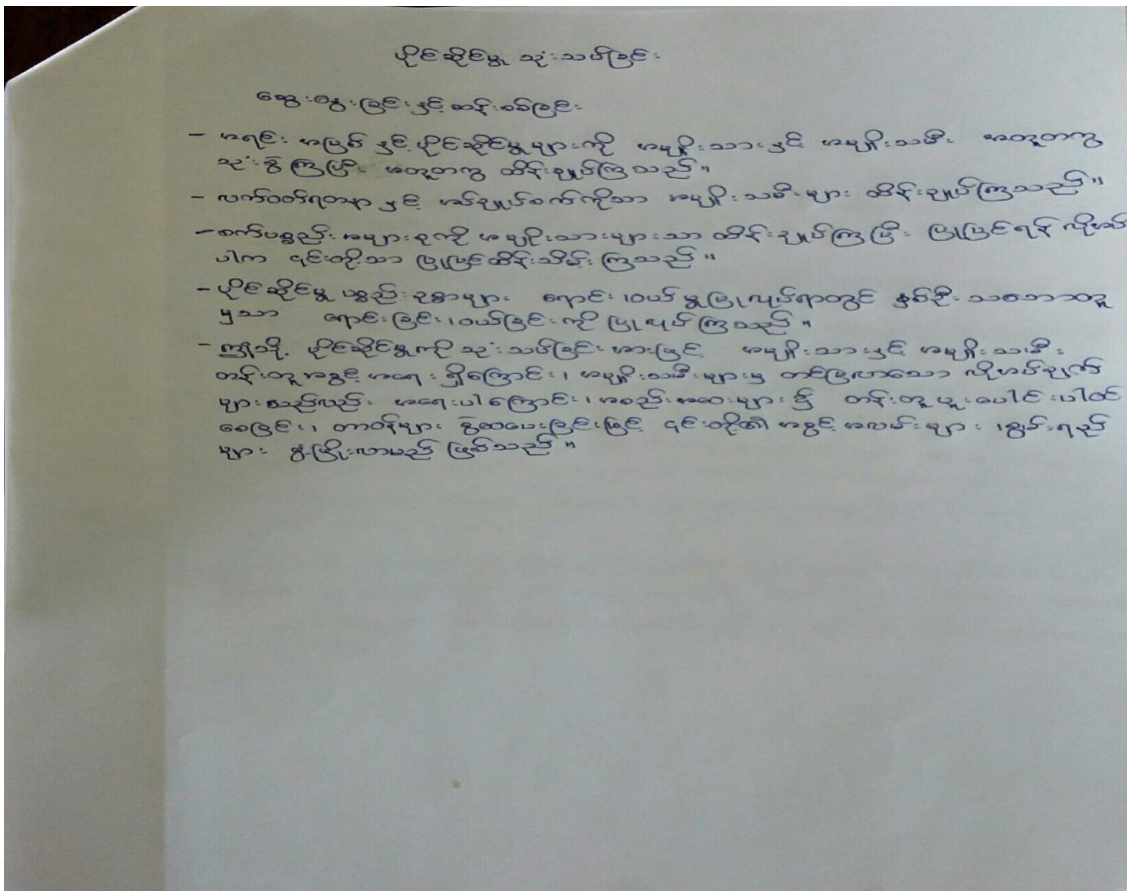 ပိုင်ဆိုင်မှု သုံးသပ်ခြင်း
ဆွေးနွေးခြင်းနှင့် ဆန်းစစ်ခြင်း
- အရင်းအမြစ်နှင့် ပိုင်ဆိုင်မှုများကို အမျိုးသားနှင့် အမျိုးသမီး အတူတကွ
သုံးစွဲကြပြီး အတူတကွ ထိန်းချုပ်ကြသည်။
- လက်ဝတ်ရတနာနှင့် အပ်ချုပ်စက်ကိုသာ အမျိုးသမီးများ ထိန်းချုပ်ကြသည်။
- စက်ပစ္စည်းအများစုကို အမျိုးသားများသာ ထိန်းချုပ်ကြပြီး ပြုပြင်ရန် လိုအပ်
ပါက ၎င်းတို့သာ ပြုပြင်ထိန်းသိမ်းကြသည်။
- ပိုင်ဆိုင်မှု ပစ္စည်းဥစ္စာများ ရောင်း၊ဝယ်မှုပြုလုပ်ရာတွင် နှစ်ဦးသဘောတူ
မှသာ ရောင်းခြင်း၊ဝယ်ခြင်းကို ပြုလုပ်ကြသည်။
- ဤသို့ ပိုင်ဆိုင်မှုကို သုံးသပ်ခြင်းအားဖြင့် အမျိုးသားနှင့် အမျိုးသမီး
တန်းတူအခွင့်အရေးရှိကြောင်း၊ အမျိုးသမီးများမှ တင်ပြလာသော လိုအပ်ချက်
များသည်လည်း အရေးပါကြောင်း၊ အစည်းအဝေးများ၌ တန်းတူပူးပေါင်းပါဝင်
စေခြင်း၊ တာဝန်များ ခွဲဝေပေးခြင်းဖြင့် ၎င်းတို့၏ အခွင့်အလမ်းများ ၊စွမ်းရည်
များ ဖွံ့ဖြိုးလာမည် ဖြစ်သည်။